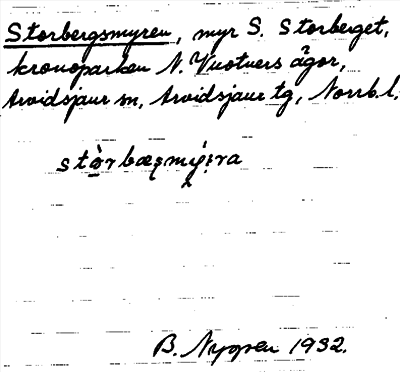 Storbergsmyren, myr S. Storberget,
kronoparken N. Vuotners ägor,
Arvidsjaur sn, Arvidsjaur tg, Norrb. l.
stòrbæṣmýṛa
B. Nyqvist 1932.